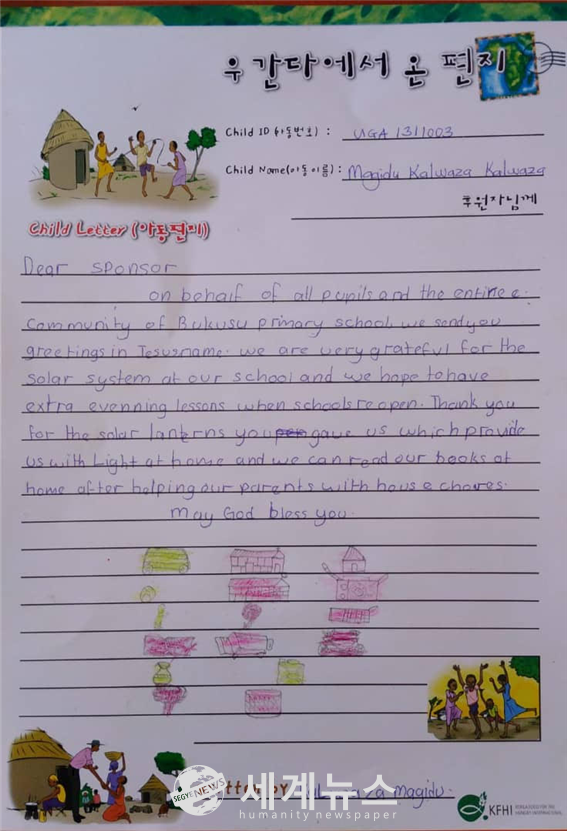 우간다에서 온 편지
Child ID (아동번호) : UGA 1311003
Child Name(아동이름) : Magidu Kalwaza Kalwaza
후원자님께
Child Letter (아동편지)
Dear sponsor
on behalf of all pupils and the entire
Community of Bukusu primary school, we send you
greetings in Jesus name. we are very grateful for the
solar system at our school and we hope to have
extra evenning lessons when schools reopen. Thank you
for the solar lanterns you gave us which provide
us with Light at home and we can read our books at
home after helping our parents with house chores.
May God bless you.
Magidu.
SEGYE NEWS
세계뉴스
humanity newspaper
KFHI